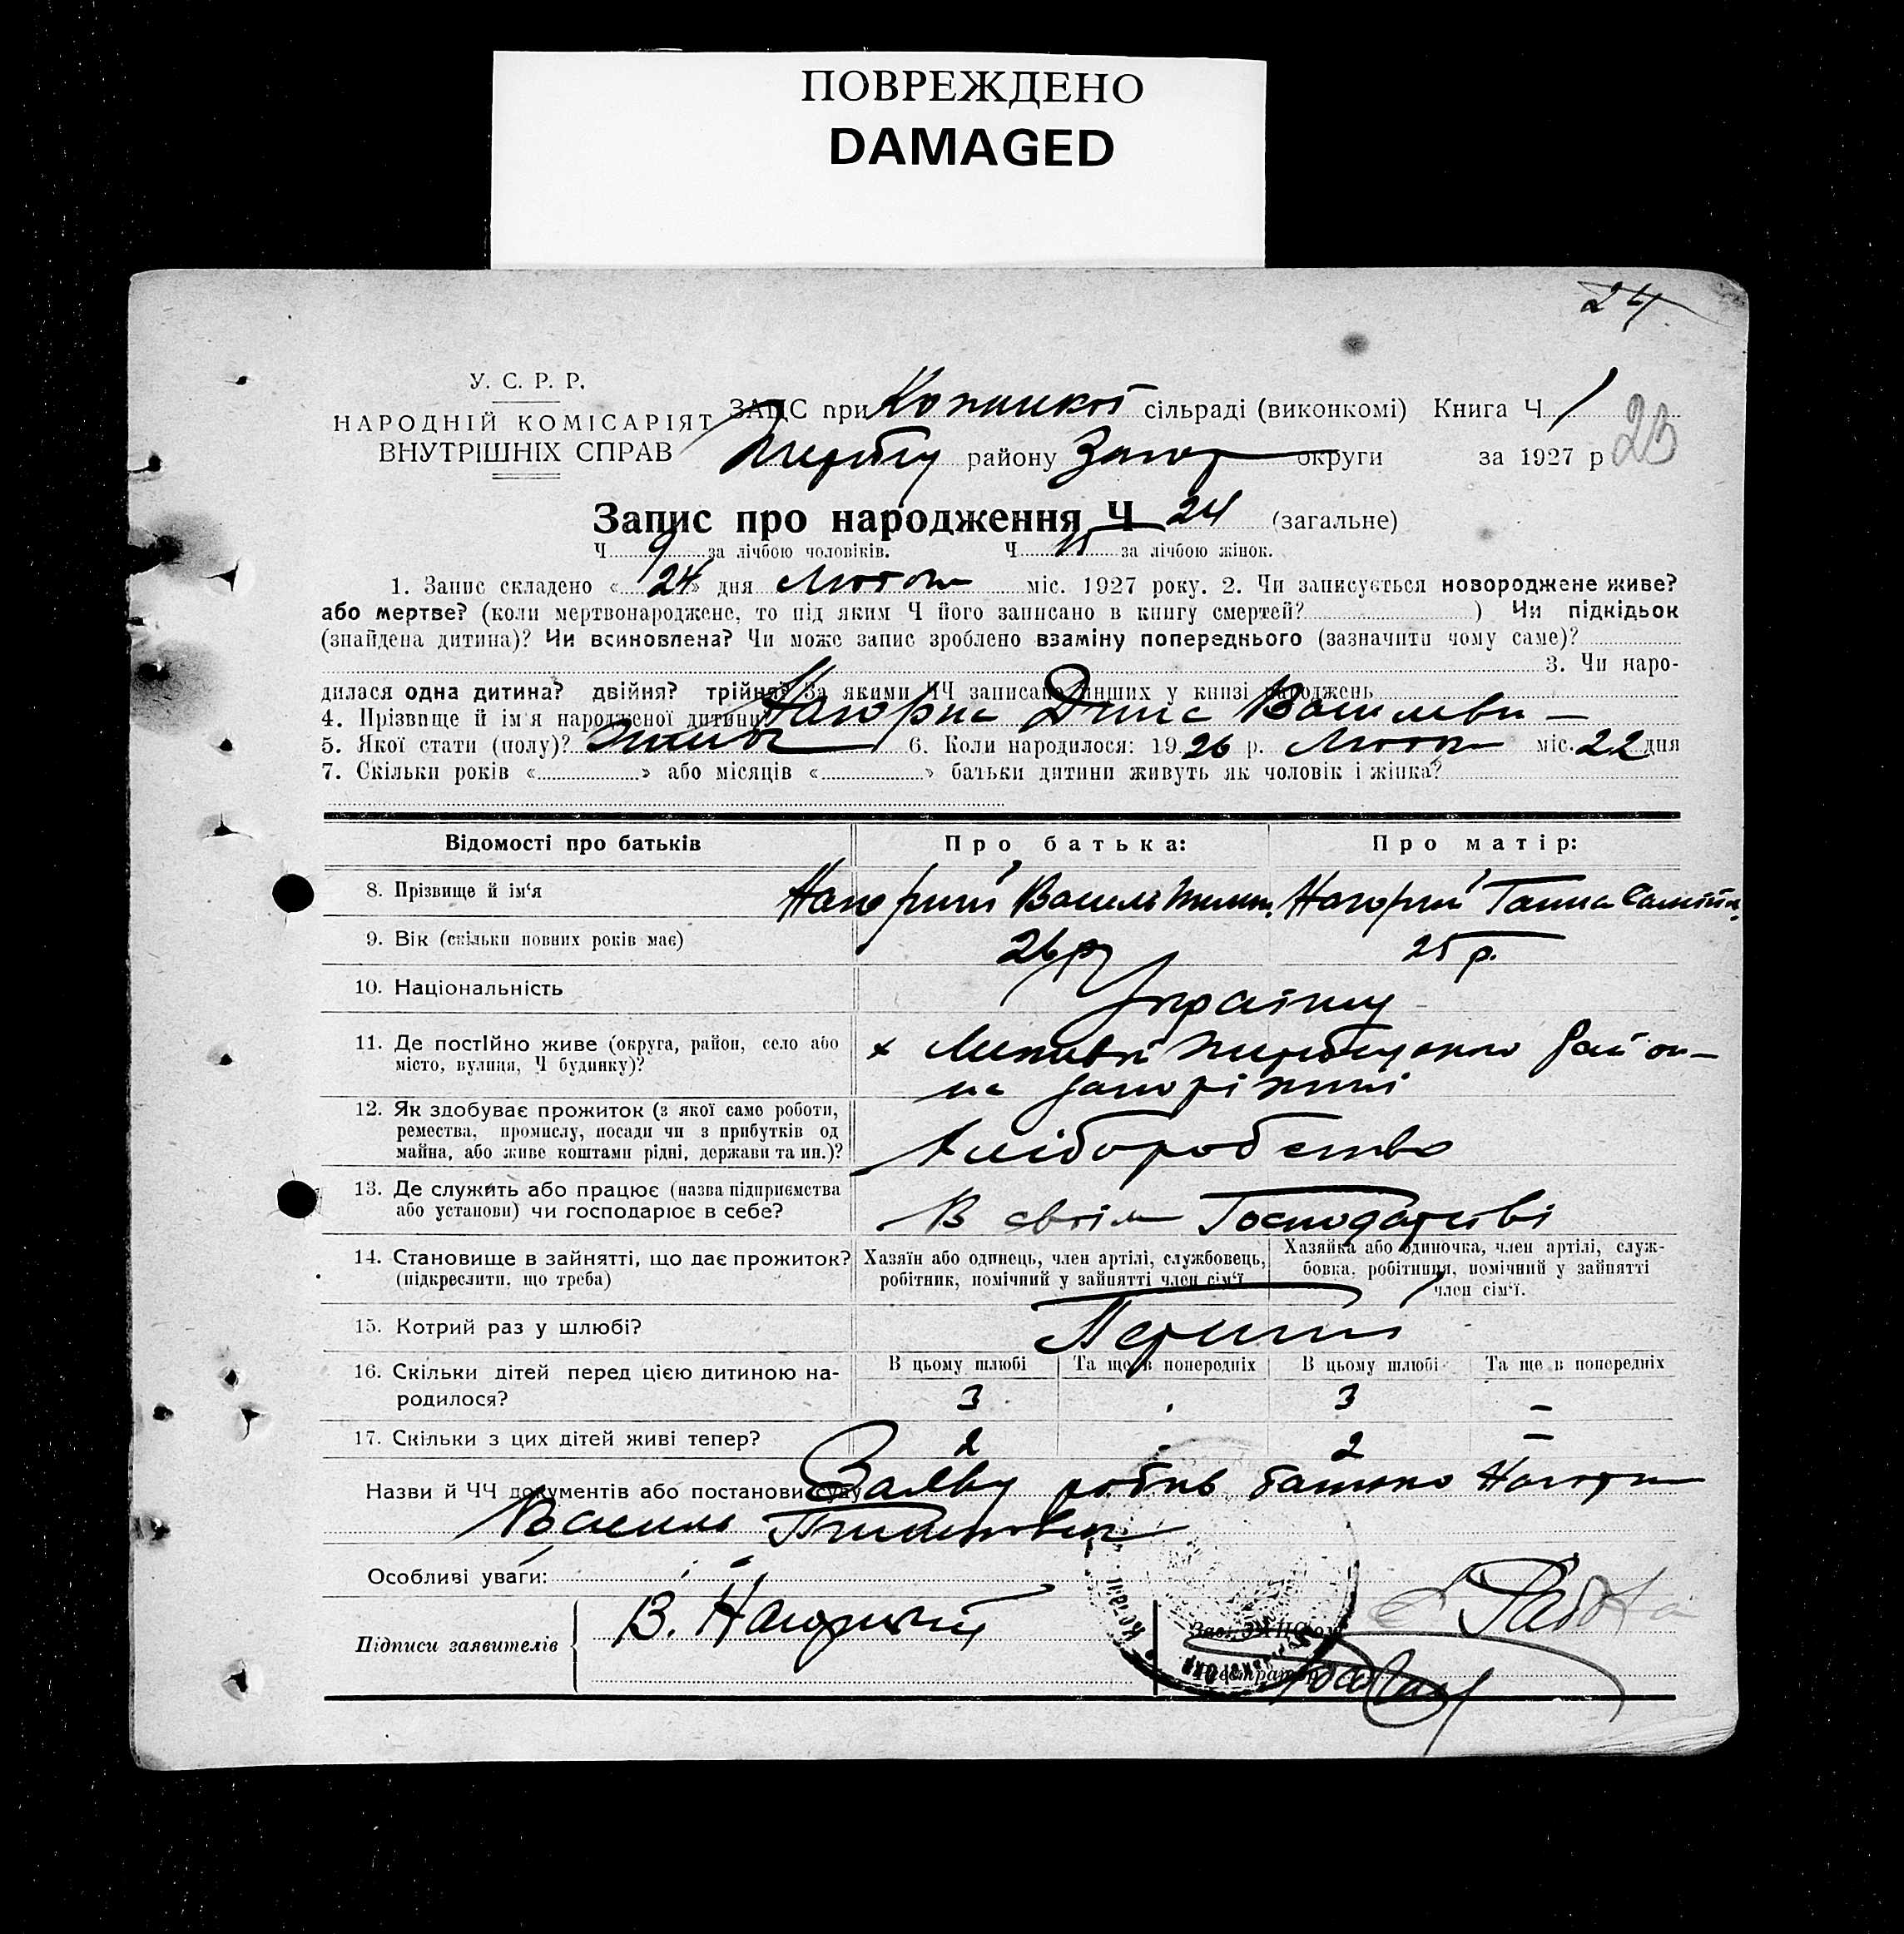 ПОВРЕЖДЕНО
DAMAGED
24
У. С. Р. Р.
НАРОДНІЙ КОМІСАРІЯТ
ВНУТРІШНІХ СПРАВ
ЗАЦС при сільраді (виконкомі) Книга Ч. 1
району Запор округи за 1927 р
23
Запис про народження Ч 24 (загальне)
Ч 9 за лічбою чоловіків. Ч 15 за лічбою жінок.
1. Запис складено « 24 » дня Лютого міс. 1927 року. 2. Чи записується новороджене живе?
або мертве? (коли мертвонароджене, то під яким Ч його записано в книгу смертей? ) Чи підкідьок
(знайдена дитина)? Чи всиновлена? Чи може запис зроблено взаміну попереднього (зазначити чому саме)?
3. Чи наро-
дилася одна дитина? двійня? трійня? За якими ЧЧ записано инших у книзі народжень
4. Прізвище й ім'я народженої дитини
5. Якої стати (полу)? 6. Коли народилося: 1926 р. міс. 22 дня
7. Скільки років « » або місяців « » батьки дитини живуть як чоловік і жінка?
Відомості про батьків
Про батька:
Про матір:
8. Прізвище й ім‘я
Нагорний Василь
Ганна
9. Вік (скільки повних років має)
26 р
25 р.
10. Національність
Українці
11. Де постійно живе (округа, район, село або
місто, вулиця, Ч будинку)?
12. Як здобуває прожиток (з якої само роботи,
ремества, промислу, посади чи з прибутків од
майна, або живе коштами рідні, держави та ин.)?
Хліборобство
13. Де служить або працює (назва підприємства
або установи) чи господарює в себе?
В своїм Господарстві
14. Становище в зайнятті, що дає прожиток?
(підкреслити, що треба)
Хазяїн або одинець, член артілі, службовець,
робітник, помічний у зайнятті член сім‘ї
Хазяйка або одиночка, член артілі, служ-
бовка, робітниця, помічний у зайнятті
член сім‘ї.
15. Котрий раз у шлюбі?
Перший
16. Скільки дітей перед цією дитиною на-
родилося?
В цьому шлюбі
Та ще в попередніх
В цьому шлюбі
Та ще в попередніх
3
3
–
17. Скільки з цих дітей живі тепер?
2
2
–
Назви й ЧЧ документів або постанови суду
Заяву робив батько
Василь
Особливі уваги:
Підписи заявителів
В. Нагорний
Зав. ЗАЦС'ом
Реєстратор